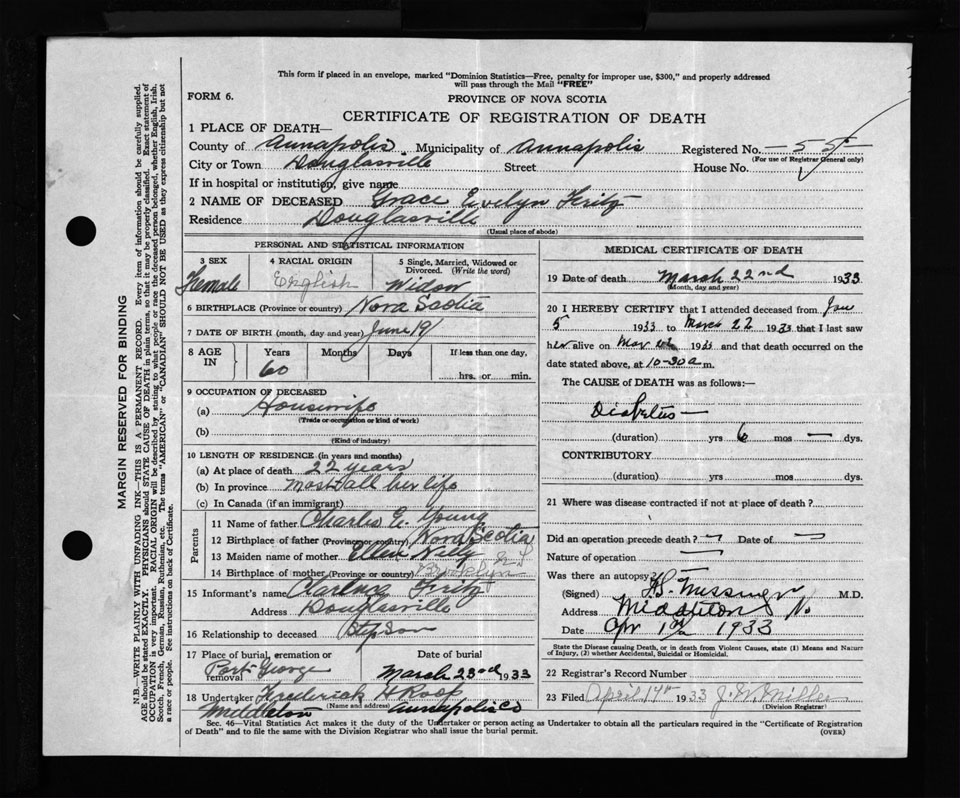 This form if placed in an envelope, marked "Dominion Statistics—Free, penalty for improper use, $300," and properly addressed
will pass through the Mail "FREE"
FORM 6.
PROVINCE OF NOVA SCOTIA
CERTIFICATE OF REGISTRATION OF DEATH
1 PLACE OF DEATH—
County of Annapolis Municipality of Annapolis Registered No. 55
(For use of Registrar General only)
City or Town Douglasville Street House No.
If in hospital or institution, give name
2 NAME OF DECEASED Grace Evelyn Fritz
Residence Douglasville
(Usual place of abode)
PERSONAL AND STATISTICAL INFORMATION
3 SEX 4 RACIAL ORIGIN 5 Single, Married, Widowed or
Divorced. (Write the word)
Female English Widow
6 BIRTHPLACE (Province or country) Nova Scotia
7 DATE OF BIRTH (month, day and year) June 19
8 AGE IN Years Months Days If less than one day,
60 hrs. or min.
9 OCCUPATION OF DECEASED
(a) Housewife
(Trade or occupation or kind of work)
(b)
(Kind of industry)
10 LENGTH OF RESIDENCE (in years and months)
(a) At place of death 22 years
(b) In province Most all her life
(c) In Canada (if an immigrant)
Parents
11 Name of father Charles E. Young
12 Birthplace of father (Province or country) Nova Scotia
13 Maiden name of mother Ellen
14 Birthplace of mother (Province or country) Brooklyn
15 Informant's name Clarence Fritz
Address Douglasville
16 Relationship to deceased Stepson
17 Place of burial, cremation or Date of burial
removal Port George March 23rd 1933
18 Undertaker Frederick H Roop
(Name and address)
Middleton Annapolis Co
MEDICAL CERTIFICATE OF DEATH
19 Date of death March 22nd 1933
(Month, day and year)
20 I HEREBY CERTIFY that I attended deceased from Jan
5 1933 to March 22 1933 that I last saw
her alive on Mar 1933 and that death occurred on the
date stated above, at 10-30 a m.
The CAUSE of DEATH was as follows:
Diabetes
(duration) yrs 6 mos — dys.
CONTRIBUTORY
(duration) yrs. mos. dys.
21 Where was disease contracted if not at place of death?
Did an operation precede death? Date of
Nature of operation
Was there an autopsy?
(Signed) Messinger M.D.
Address Middleton
Date Apr 1933
State the Disease causing Death, or in death from Violent Causes, state (1) Means and Nature
of Injury, (2) whether Accidental, Suicidal or Homicidal.
22 Registrar's Record Number
23 Filed April 17th 1933 J. Miller
(Division Registrar)
Sec. 46—Vital Statistics Act makes it the duty of the Undertaker or person acting as Undertaker to obtain all the particulars required in the "Certificate of Registration
of Death" and to file the same with the Division Registrar who shall issue the burial permit. (OVER)
MARGIN RESERVED FOR BINDING
N.B.—WRITE PLAINLY WITH UNFADING INK—THIS IS A PERMANENT RECORD. Every item of information should be carefully supplied.
AGE should be stated EXACTLY. PHYSICIANS should STATE CAUSE OF DEATH in plain terms, so that it may be properly classified. Exact statement of
OCCUPATION is very important. RACIAL ORIGIN will be described by stating to what people or race the deceased person belonged, whether English, Irish,
Scotch, French, German, Russian, Ruthenian, etc. The terms "AMERICAN" or "CANADIAN" SHOULD NOT BE USED as they express citizenship but not
a race or people. See instructions on back of Certificate.